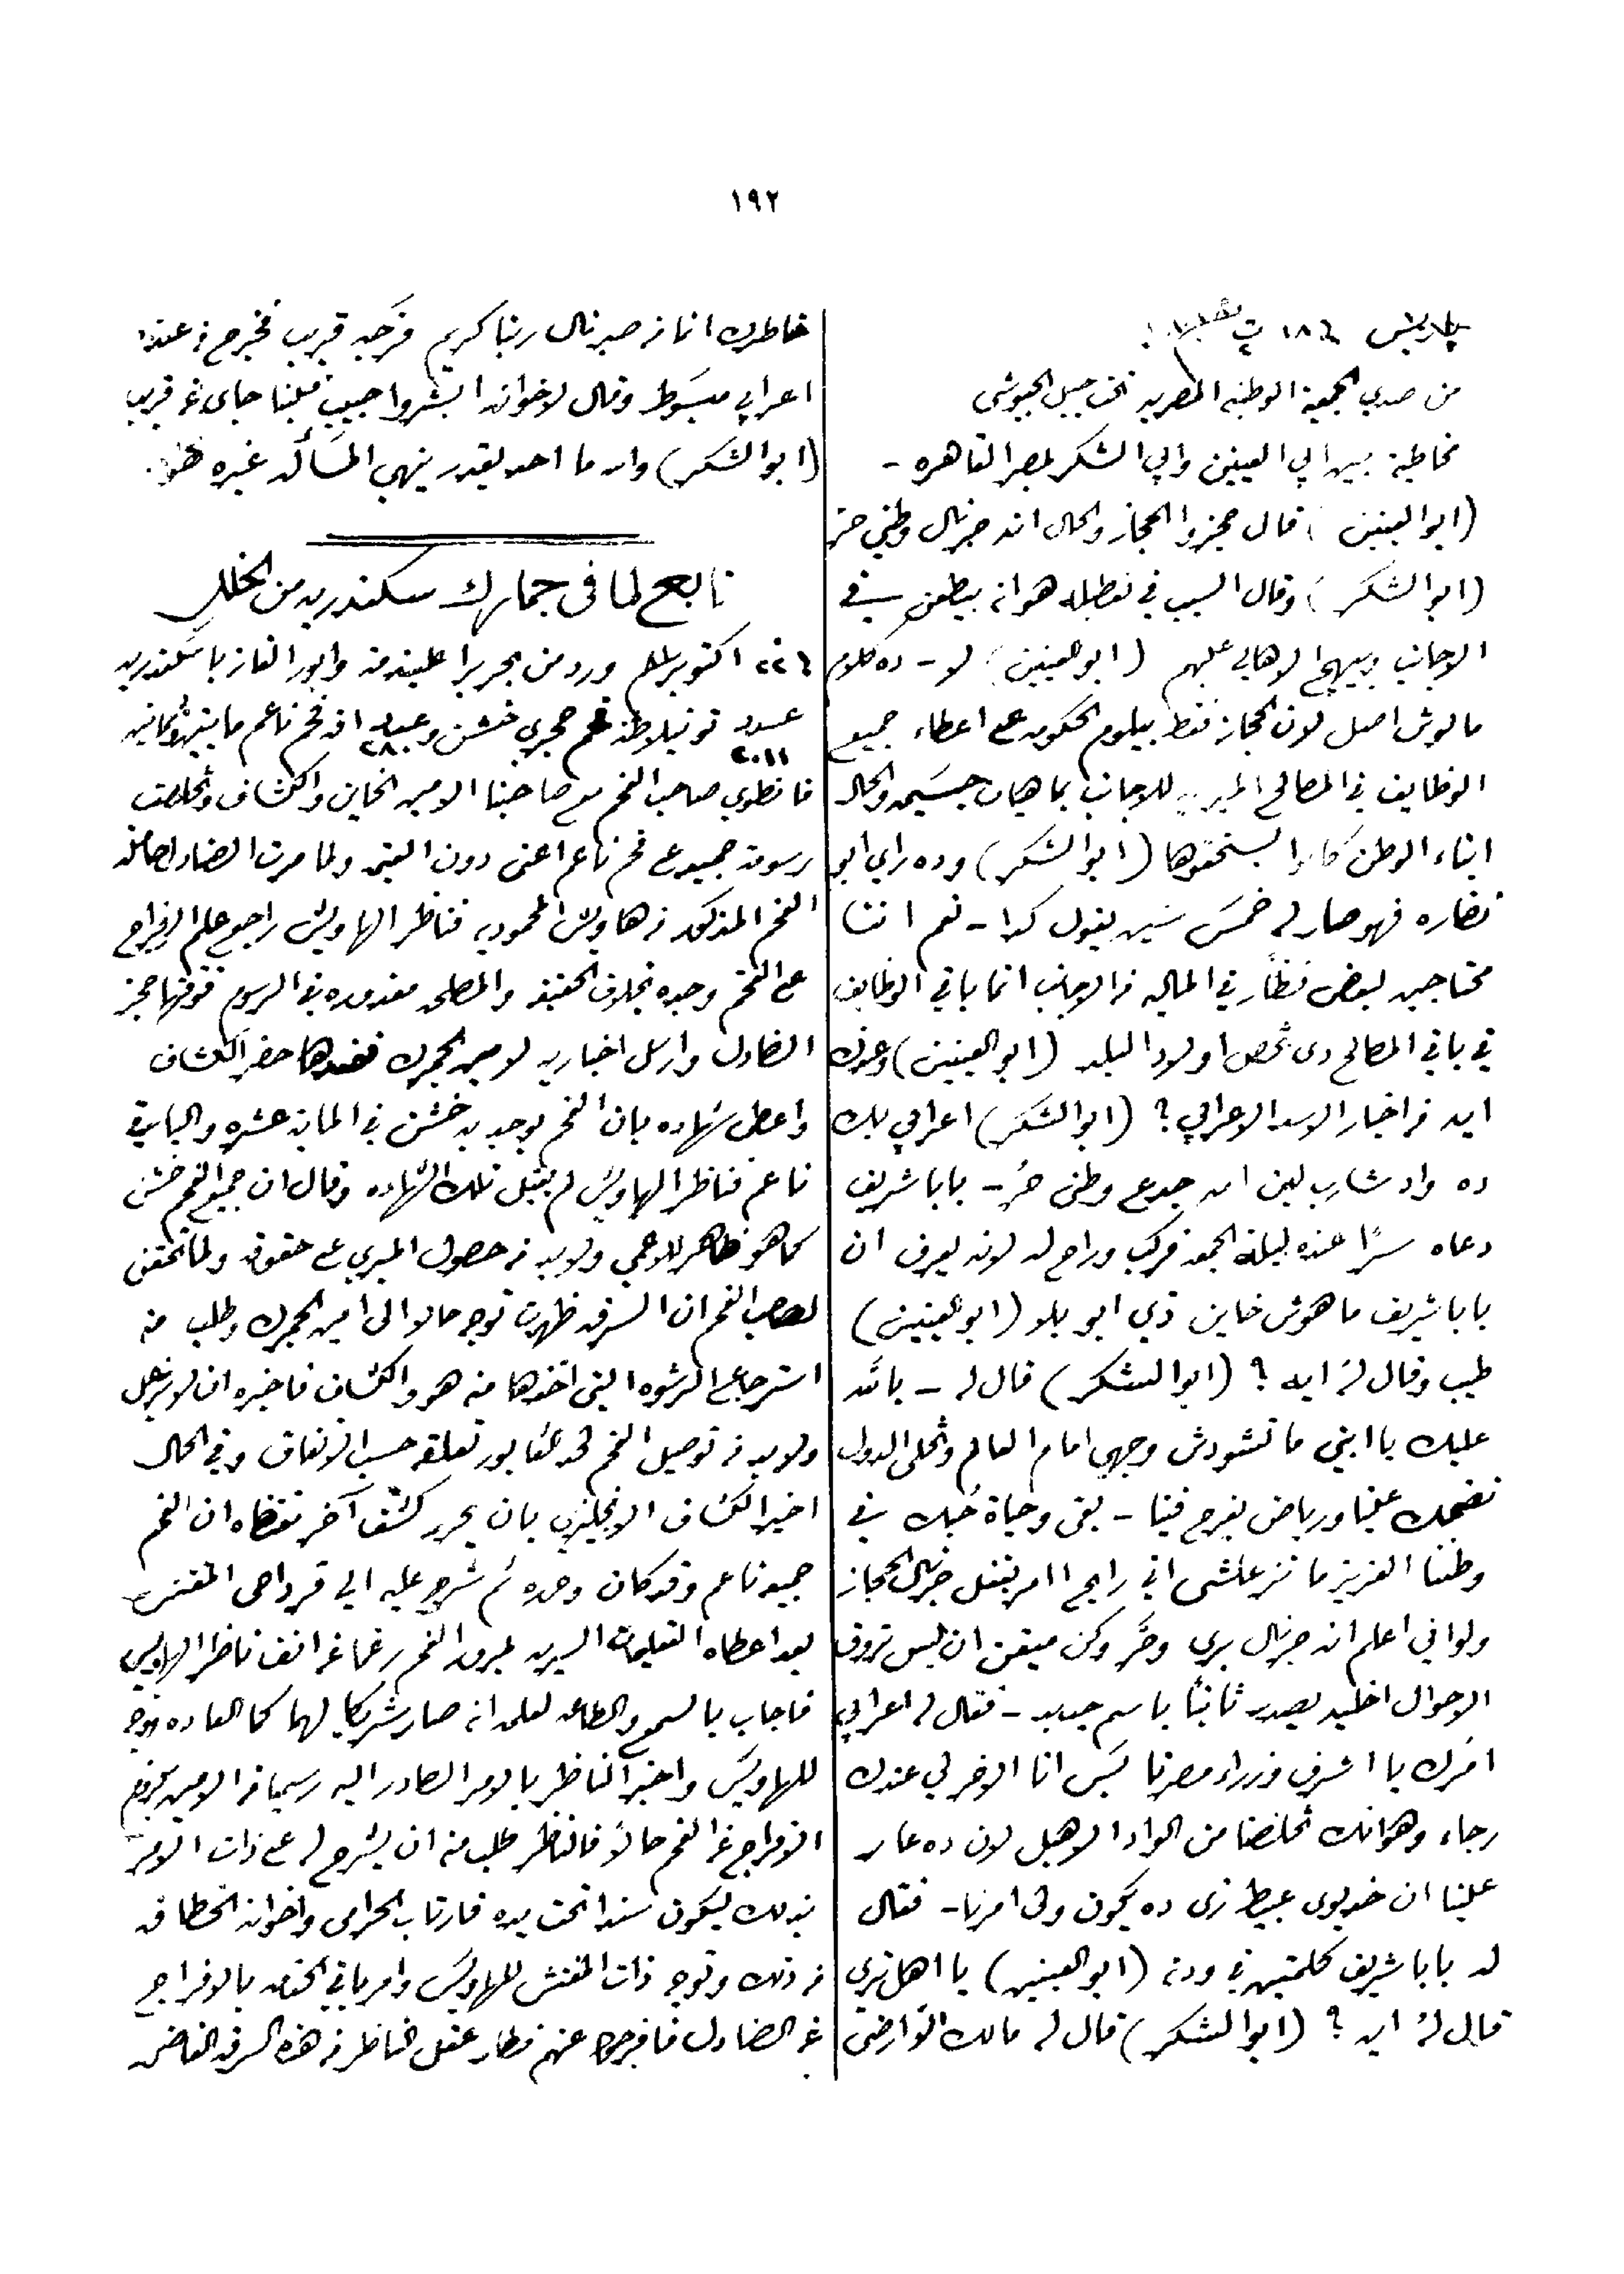 ١٩٢
من صدي الجمعية الوطنية المصريه تحت جبل الجيوشي
مخاطبة بين ابي العينين وابي الشكر بمصر القاهره -
(ابو العينين) قال حجزوا الحجاز والحال انه جرنال وطني حر
(ابو الشكر) وقال السبب في تعطيله هو انه بيطعن في
الاجانب وبيهيج الاهالي عليهم (ابو العينين) لا - ده كلام
مالوش اصل لان الحجاز فقط بيلوم الحكومه على اعطاء جميع
الوظايف في المصالح الميريه للاجانب بماهيات جسيمه والحال
ابناء الوطن كانوا يستحقوها (ابو الشكر) وده راي ابو
نضاره فهو صار له خمس سنين يقول كدا - نعم اننا
محتاجين لبعض نظار في الماليه من الاجانب انما باقي الوظايف
في باقي المصالح دي تخص اولاد البلد (ابو العينين) وعندك
ايه من اخبار الاسد الاعرابي ؟ (ابو الشكر) اعرابي بك
ده واد شارب لبن امه جدع وطني حُر - بابا شريف
دعاه سرًا عنده ليلة الجمعه فركب وراح له لانه يعرف ان
بابا شريف ما هوش خاين زي ابو بلا (ابو العينين)
طيب وقال لهُ ايه ؟ (ابو الشكر) قال له - بالله
عليك يا ابني ما تسودش وجهي امام العالم وتخلي الدول
تضحك علينا ورياض يفرح فينا - بقى وحياة حُبك في
وطننا العزيز ما تزعلشي اني رايح اامر بقفل جرنال الحجاز
ولو اني اعلم انه جرنال بري وحُر وكن ميقن ان بس تروق
الاحوال اخليه يصدر ثانيًا باسم جديد - فقال له اعرابي
امرك يا اشرف وزراء مصرنا بس انا الاخر لي عندك
رجاء وهو انك تخلصنا من الواد الاهبل لان ده عار
علينا ان خديوي عبيط زي ده يكون ولي امرنا - فقال
له بابا شريف كلمتين في ودنه (ابو العينين) يا اهل تري
قال لهُ ايه ؟ (ابو الشكر) قال له مالك الا رضى
خاطرك انما من صبر نال ربنا كريم فرَجه قريب فخرج من عنده
اعرابي مبسوط وقال لاخوانه ابشروا حبيب قلبنا جاي عن قريب
(ابو الشكر) واه ما احد يقدر ينهي المسأله غيره
تابع لما في جمارك سكندريه من الخلل
اكتوبر ورد من بحر برا علينده وابور الغاز باسكندريه
عدد ٢٠١١ تونيلاطه فحم حجري خشن وعدد ٢٨٠ فحم ناعم
صاحب الفحم مع صاحبنا الامين الخاين والكشاف وتخلصت
رسومة جميعه فحم ناعم اعني دون القيمه ولما مرت الصنادل حاملة
الفحم المذكور من هاويس المحموديه فناظر الهاويس راجع علم الافراج
على الفحم وجده بخلاف الحقيقه والمصلحه مغدوره في الرسوم فوقتها حجز
الصنادل وارسل اخباريه لامين الجمرك فبعدها حضر الكشاف
واعطى شهاده بان الفحم يوجد به خشن في الماية عشره والباقي
ناعم فناظر الهاويس لم يقبل تلك الشهاده وقال ان جميع الفحم خشن
كما هو ظاهر للاعمي ولابد من حصول الميري على حقوقه ولما تحقق
لصاحب الفحم ان السرقه ظهرت توجه حالا الى امين الجمرك وطلب منه
استرجاع الرشوه التي اخذها منه هو والكشاف فاخبره ان لا يزعل
ولابد من توصيل الفحم تعلقه حسب الاتفاق وفي الحال
اخبر الكشاف الانجليزي بان يحرر كشف آخر مقتضاه ان الفحم
جميعه ناعم وقد كان وحده ثم شرح عليه الى قرداحي المفتش
بعد اعطاه التعليمات السريه لمرور الفحم رغما عن انف ناظر الهاويس
فاجاب بالسمع والطاعه لعلمه انه صار شريكا لهما كالعاده فتوجه
للهاويس واخبر الناظر بالامر الصادر اليه رسميا من الامين بخروج
الافراج عن الفحم حالاً فالناظر طلب منه ان يشرح له على ذات الامر
بذلك ليكون سندا تحت يده فارتاب الحرامي واخوانه الخطافه
من ذلك وتوجه ذات المفتش للهاويس وامر باقي الخدمه بالافراج
عن الصنادل فافرجوا عنهم فطار عقل الناظر من هذه السرقه الفاضحه